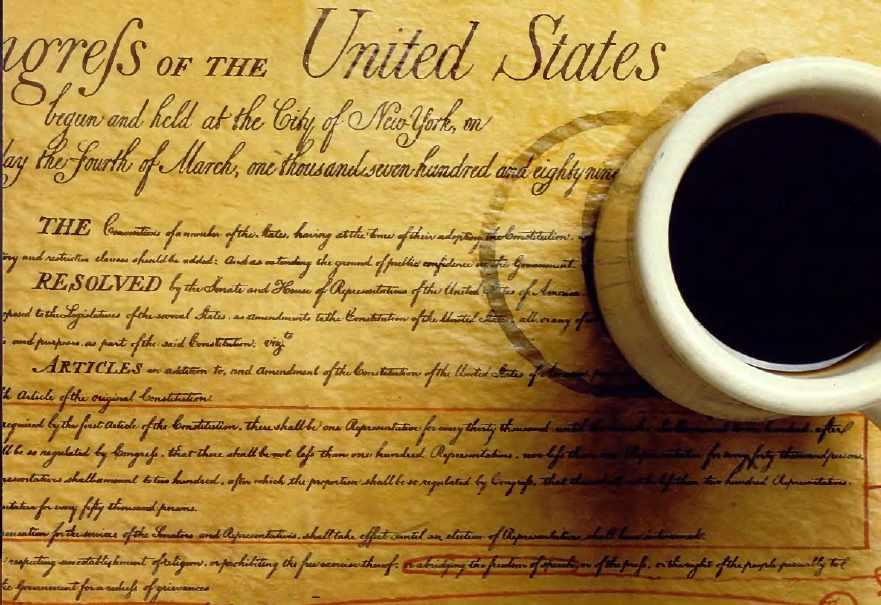 ngreſs OF THE United States
begun and held at the City of New-York, on
day the Fourth of March, one thousand seven hundred and eighty nine
THE Conventions of a number of the States, having at the time of their adopting the Constitution,
ory and restrictive clauses should be added: And as extending the ground of public confidence in the Government
RESOLVED by the Senate and House of Representatives of the United States of America
oposed to the Legislatures of the several States, as amendments to the Constitution of the United States, all or any of
s and purposes, as part of the said Constitution; vizt
ARTICLES in addition to, and Amendment of the Constitution of the United States of
th Article of the original Constitution
required by the first Article of the Constitution, there shall be one Representative for every thirty thousand until hundred, after
ll be so regulated by Congreſs, that there shall be not leſs than one hundred Representatives, nor leſs than one Representative for every forty thousand persons,
resentatives shall amount to two hundred, after which the proportion shall be so regulated by Congreſs, that there shall not be leſs than two hundred Representatives,
entative for every fifty thousand persons.
pensation for the services of the Senators and Representatives, shall take effect until an election of Representatives shall have intervened.
respecting an establishment of religion, or prohibiting the free exercise thereof; or abridging the freedom of speech, or of the press, or the right of the people peaceably to
he Government for a redreſs of grievances